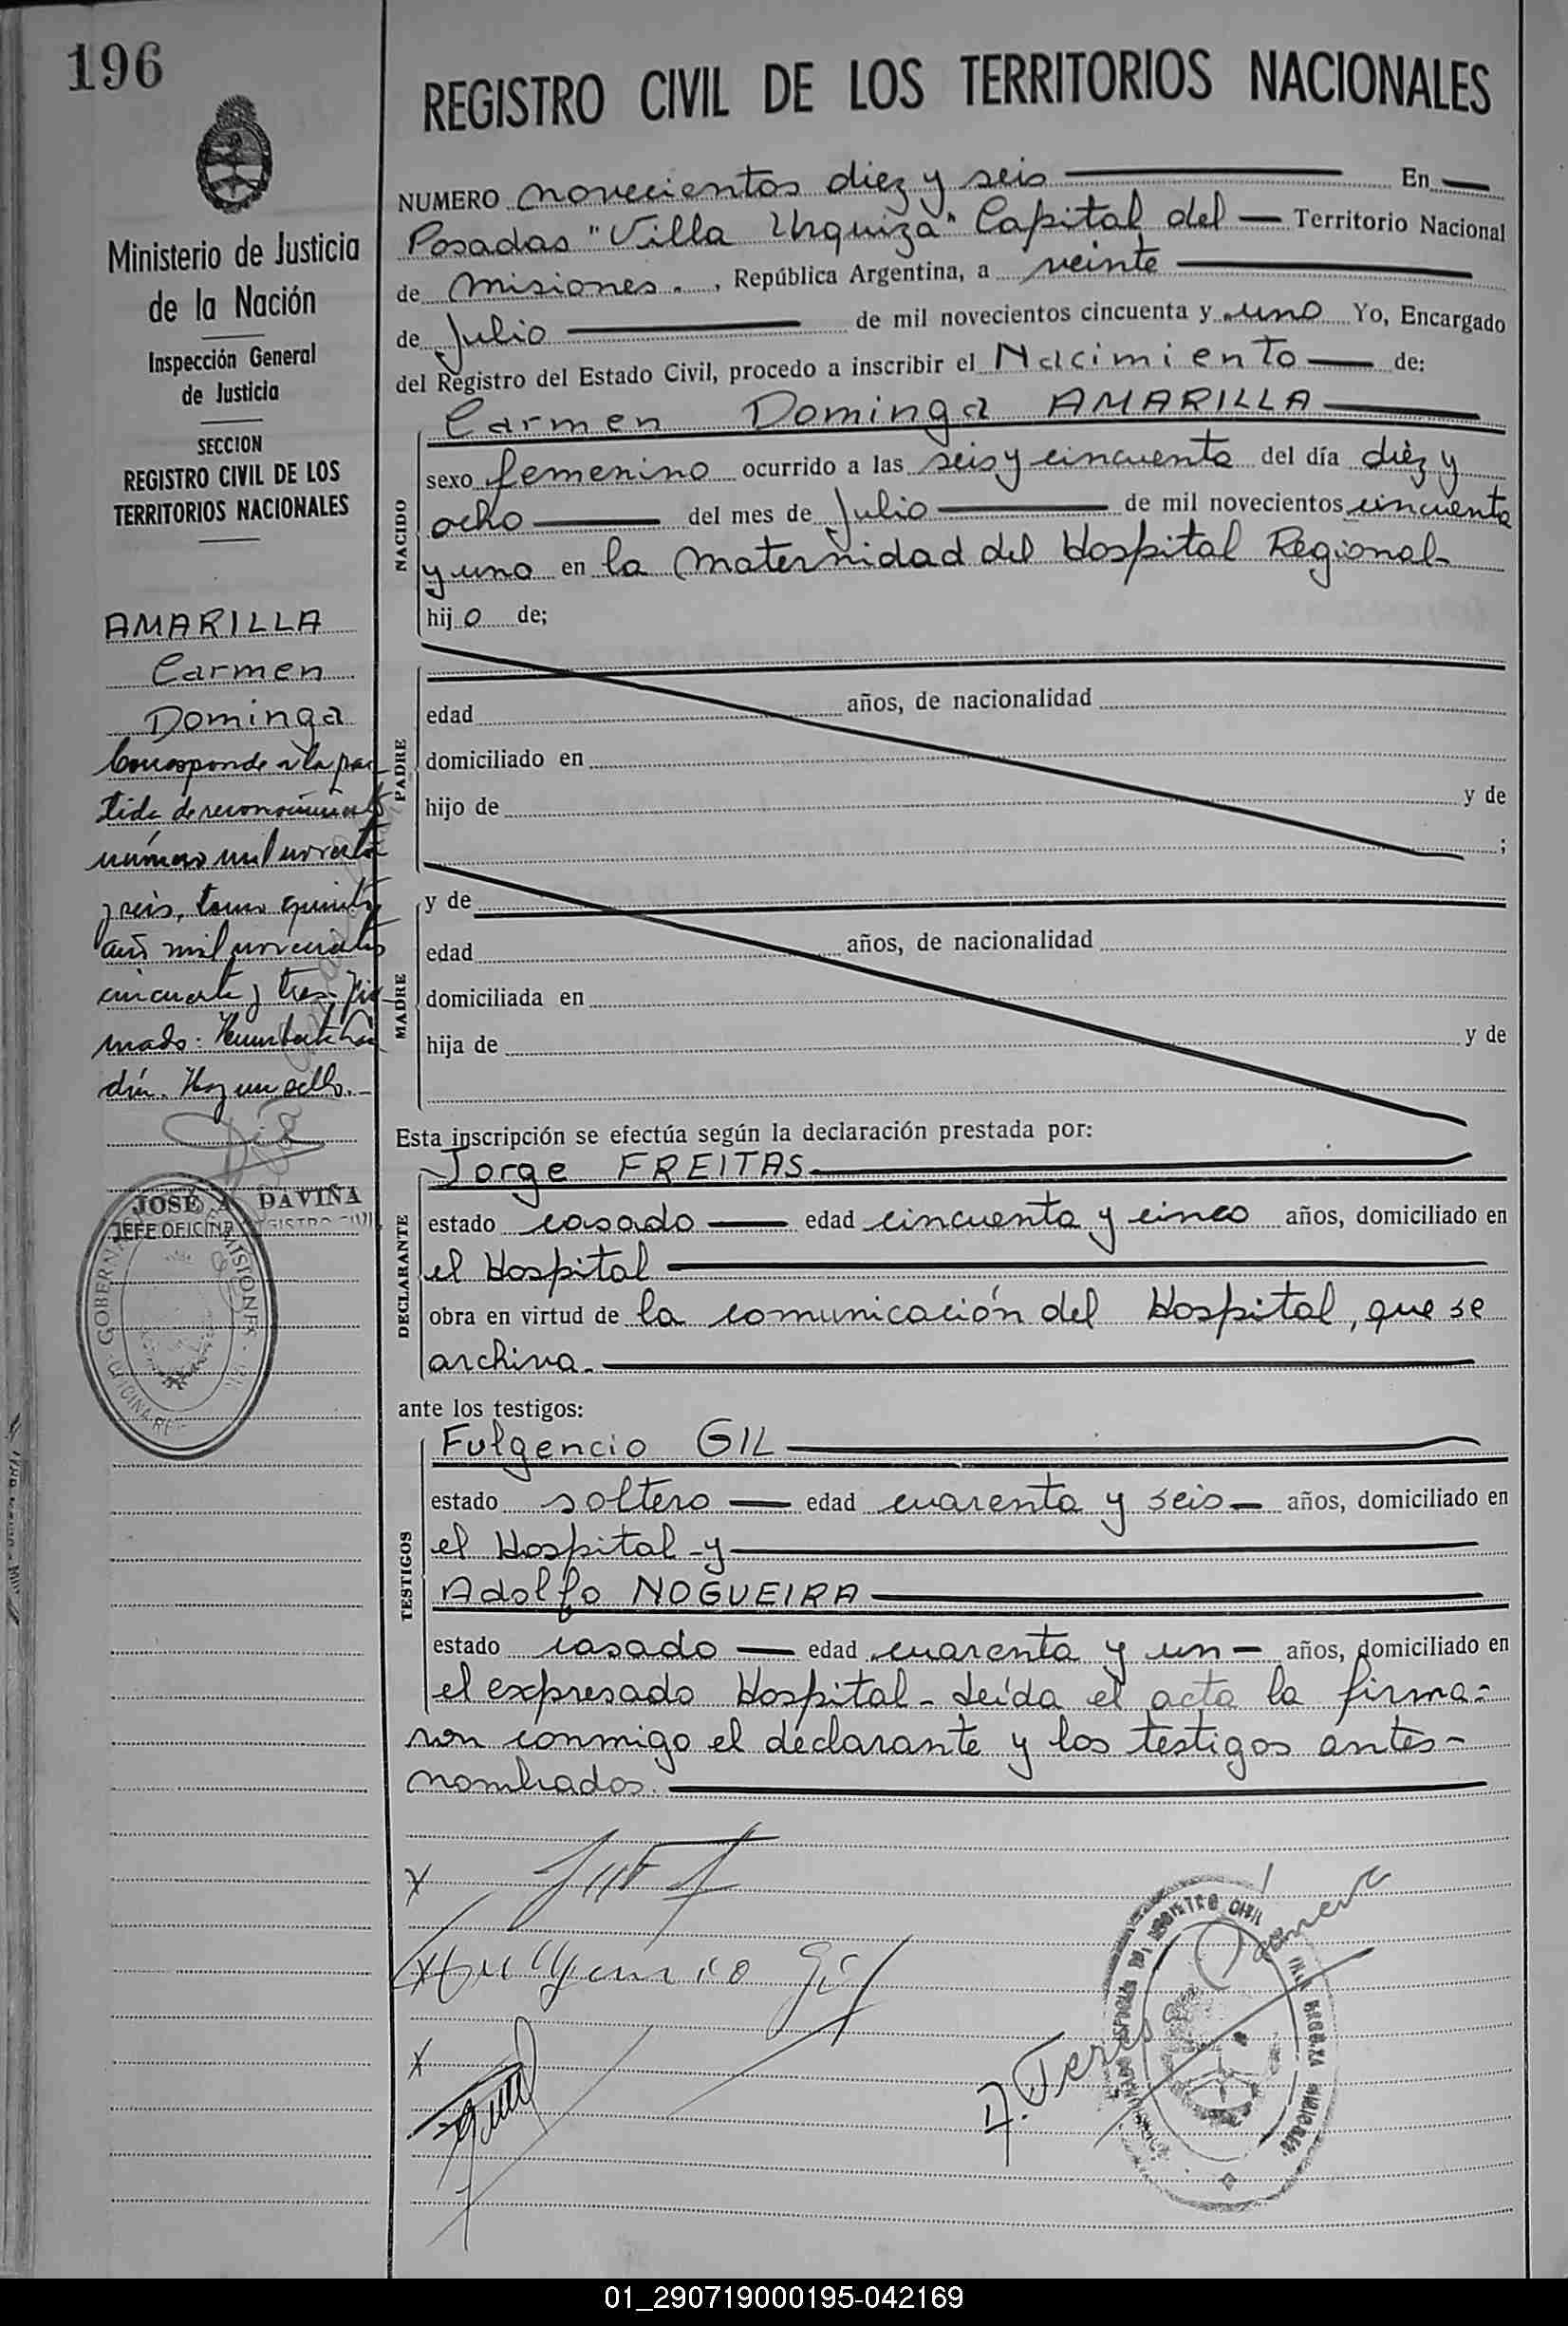 196
REGISTRO CIVIL DE LOS TERRITORIOS NACIONALES
Ministerio de Justicia
de la Nación
Inspección General
de Justicia
SECCION
REGISTRO CIVIL DE LOS
TERRITORIOS NACIONALES
AMARILLA
Carmen
Dominga
Corresponde a la par
tida de reconocimiento
número mil
y seis, tomo quinto,
año mil novecientos
cincuenta y tres. Fir
mado: Humberto
Hay un sello.-
JOSÉ A. DAVIÑA
JEFE OFICINA REGISTRO CIVIL
GOBERN MISIONES
OFICINA
NUMERO novecientos diez y seis En
Posadas "Villa Urquiza" Capital del Territorio Nacional
de Misiones. , República Argentina, a veinte
de Julio de mil novecientos cincuenta y uno Yo, Encargado
del Registro del Estado Civil, procedo a inscribir el Nacimiento de:
Carmen Dominga AMARILLA
NACIDO
sexo femenino ocurrido a las seis y cincuenta del día diez y
ocho del mes de Julio de mil novecientos cincuenta
y uno en la Maternidad del Hospital Regional-
hij o de;
PADRE
edad años, de nacionalidad
domiciliado en
hijo de y de
;
MADRE
y de
edad años, de nacionalidad
domiciliada en
hija de y de
Esta inscripción se efectúa según la declaración prestada por:
DECLARANTE
Jorge FREITAS
estado casado edad cincuenta y cinco años, domiciliado en
el Hospital
obra en virtud de la comunicación del Hospital, que se
archiva.
ante los testigos:
TESTIGOS
Fulgencio GIL
estado soltero edad cuarenta y seis años, domiciliado en
el Hospital - y
Adolfo NOGUEIRA
estado casado edad cuarenta y un años, domiciliado en
el expresado Hospital - Leída el acta la firma=
ron conmigo el declarante y los testigos antes-
nombrados.
x
x Fulgencio Gil
x
REGISTRO CIVIL
01_290719000195-042169